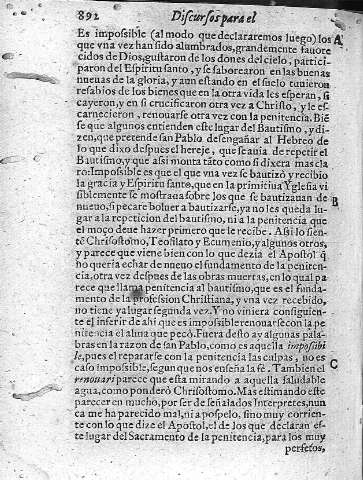 892 Discursos para el
Es imposible (al modo que declararemos luego) los A
que vna vez han sido alumbrados, grandemente fauore
cidos de Dios, gustaron de los dones del cielo, partici
paron del Espiritu santo, y se saborearon en las buenas
nueuas de la gloria, y aun estando en el suelo tuuieron
resabios de los bienes que en la otra vida les esperan, si
cayeron, y en si crucificaron otra vez a Christo, y le es-
carnecieron, renouarse otra vez con la penitencia. Biẽ
se que algunos entienden este lugar del Bautismo, y di-
zen, que pretende san Pablo desengañar al Hebreo de
lo que dixo despues el hereje, que se auia de repetir el
Bautismo, y que assi monta tãto como si dixera mas cla
ro: Imposible es que el que vna vez se bautizó y recibio
la gracia y Espiritu santo, que en la primitiua Yglesia vi
siblemente se mostraua sobre los que se bautizauan de B
nueuo, si pecare boluer a bautizarse, ya no les queda lu-
gar a la repeticion del bautismo, ni a la penitencia que
el moço deue hazer primero que le recibe. Assi lo sien-
tẽ Chrisostomo, Teofilato y Ecumenio, y algunos otros,
y parece que viene bien con lo que dezia el Apostol q̃
no queria echar de nueuo el fundamento de la peniten-
cia, otra vez despues de las obras muertas, en lo qual pa
rece que llama penitencia al bautismo, que es el funda-
mento de la profession Christiana, y vna vez recebido,
no tiene ya lugar segunda vez. Y no viniera consiguien-
te el inferir de ahi que es imposible renouarse con la pe
nitencia el alma que pecó. Fuera desto ay algunas pala-
bras en la razon de san Pablo, como es aquella imposibi
le, pues el repararse con la penitencia las culpas, no es C
caso imposible, segun que nos enseña la fè. Tambien el
renouari parece que esta mirando a aquella saludable
agua, como ponderó Chrisostomo. Mas estimando este
parecer en mucho, por ser de señalados Interpretes, nun
ca me ha parecido mal, ni a pospelo, sino muy corrien-
te con lo que dize el Apostol, el de los que declaran es-
te lugar del Sacramento de la penitencia, para los muy
perfetos,